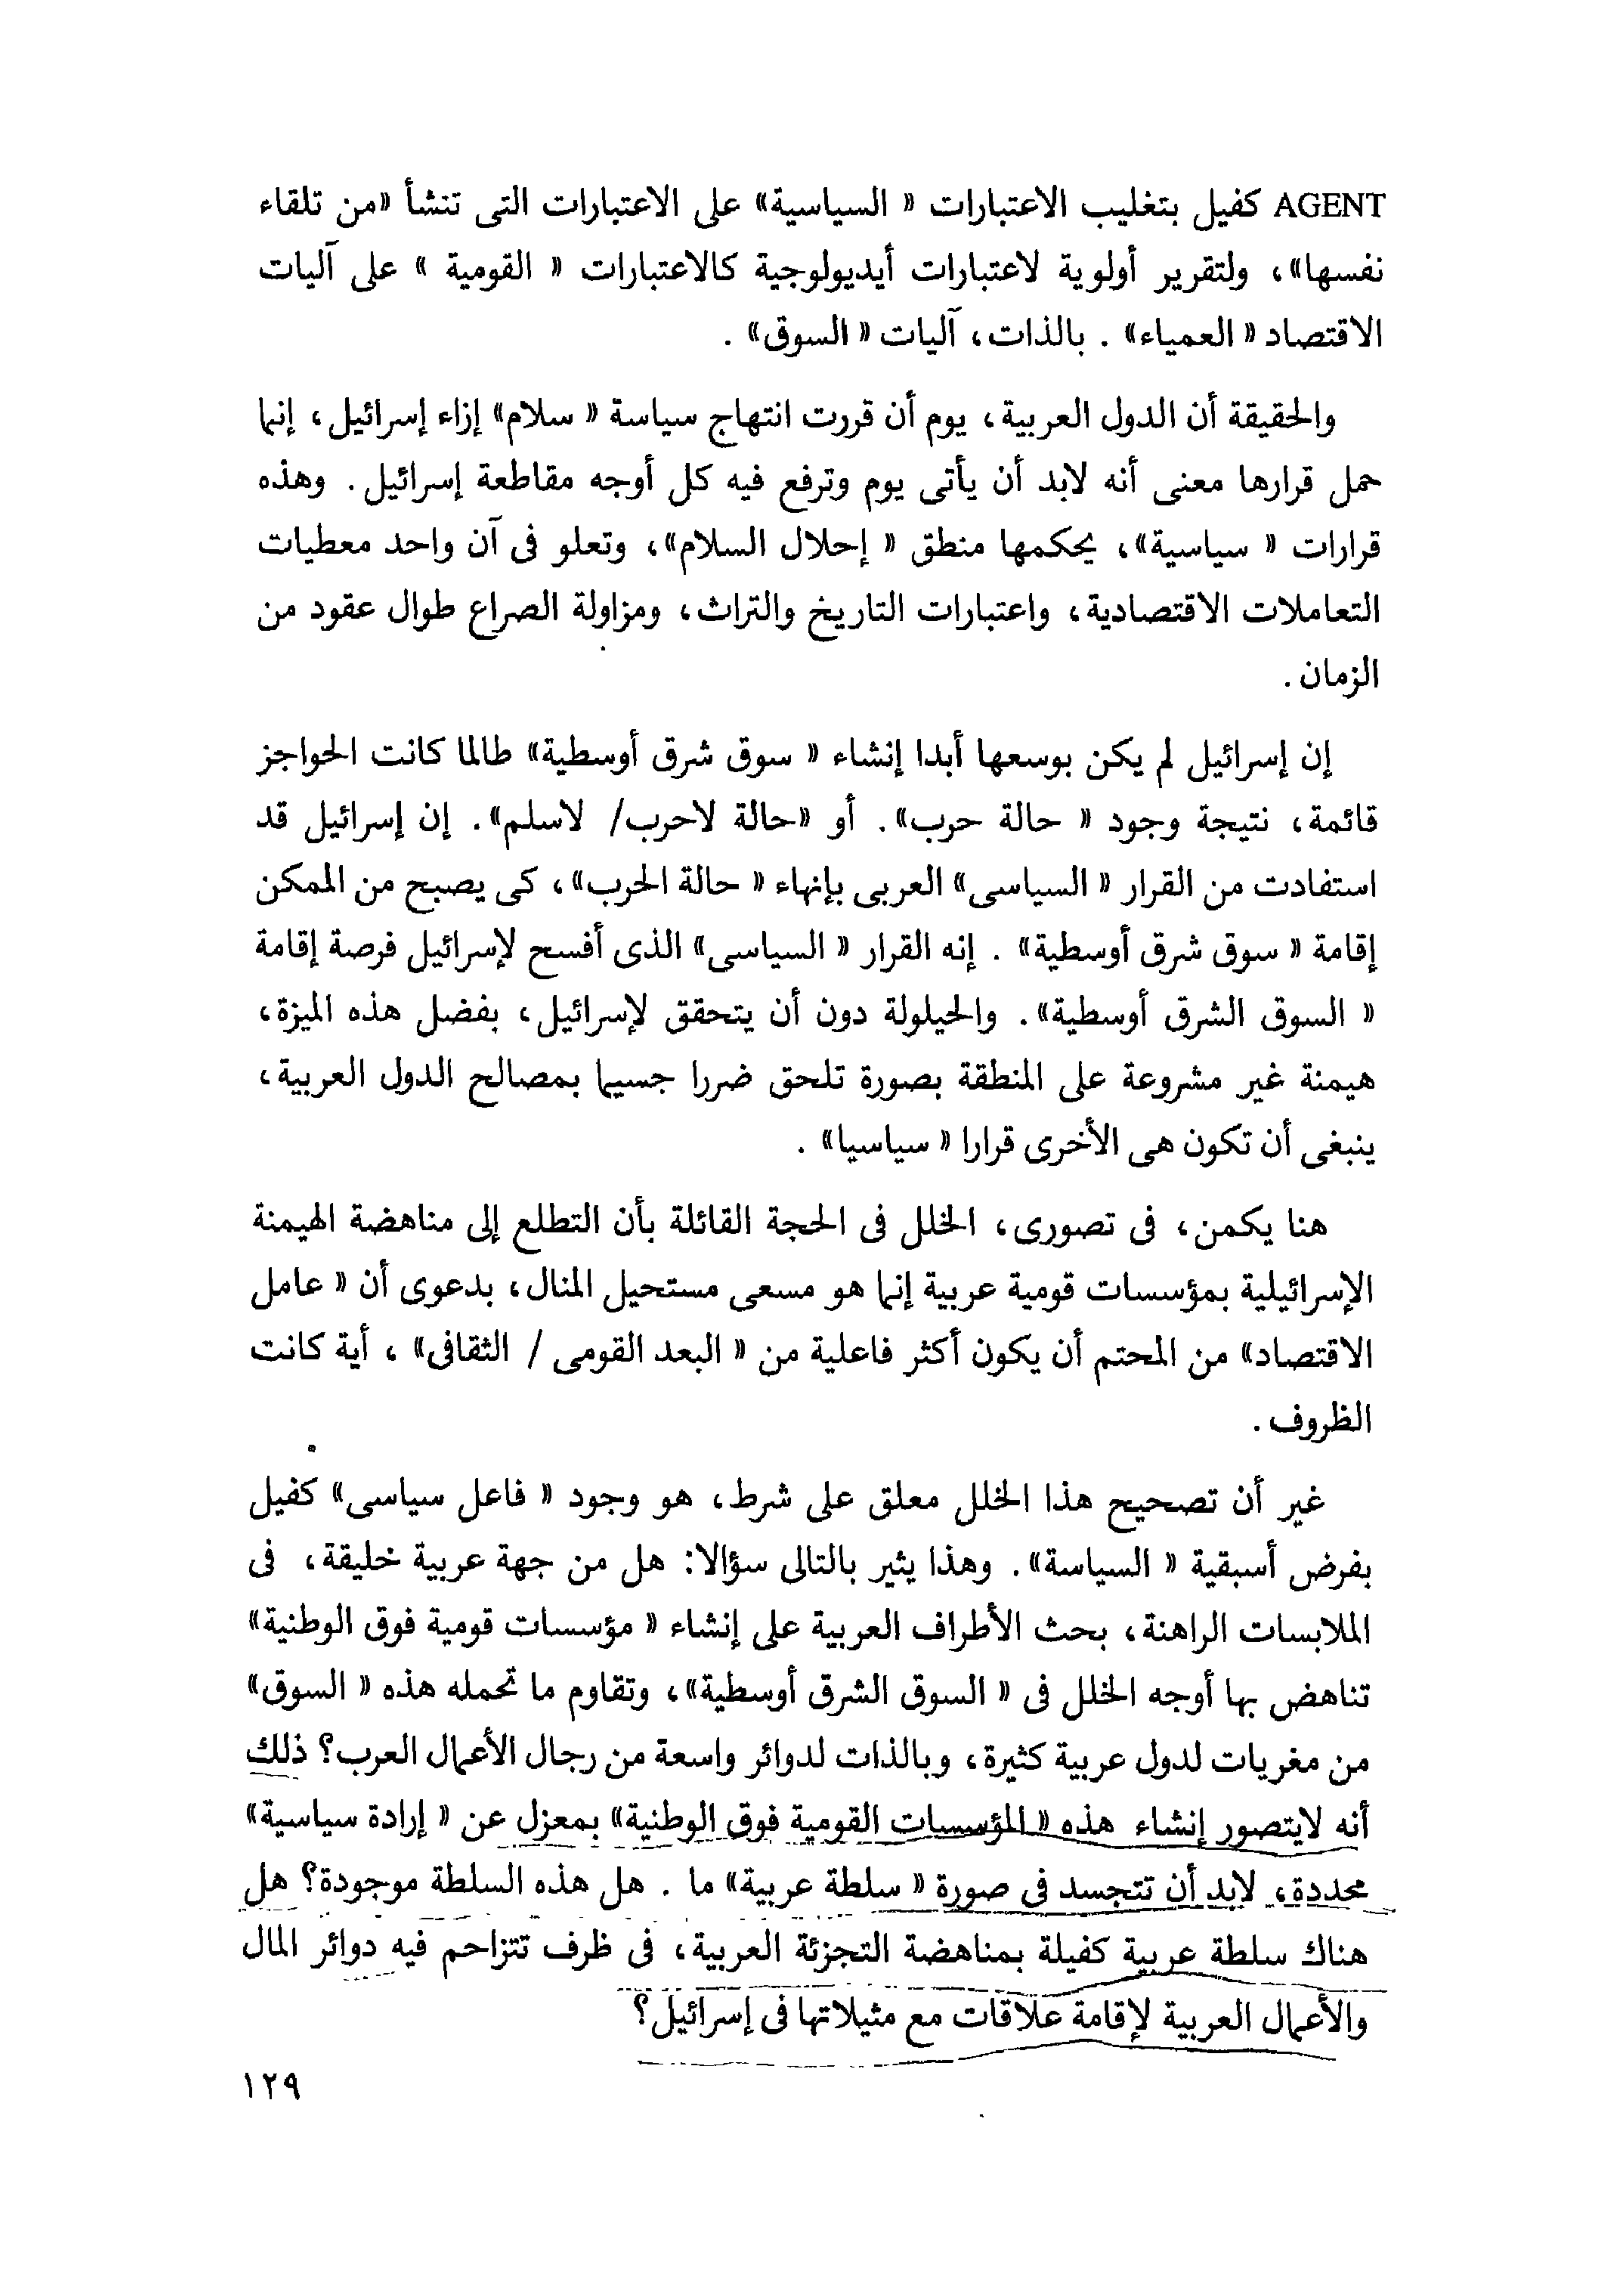 AGENT كفيل بتغليب الاعتبارات « السياسية» على الاعتبارات التى تنشأ «من تلقاء
نفسها»، ولتقرير أولوية لاعتبارات أيديولوجية كالاعتبارات « القومية » على آليات
الاقتصاد « العمياء» . بالذات، آليات « السوق» .
والحقيقة أن الدول العربية، يوم أن قررت انتهاج سياسة « سلام» إزاء إسرائيل، إنما
حمل قرارها معنى أنه لابد أن يأتى يوم وترفع فيه كل أوجه مقاطعة إسرائيل. وهذه
قرارات « سياسية»، يحكمها منطق « إحلال السلام»، وتعلو فى آن واحد معطيات
التعاملات الاقتصادية، واعتبارات التاريخ والتراث، ومزاولة الصراع طوال عقود من
الزمان .
إن إسرائيل لم يكن بوسعها أبدا إنشاء « سوق شرق أوسطية» طالما كانت الحواجز
قائمة، نتيجة وجود « حالة حرب». أو «حالة لاحرب/ لاسلم». إن إسرائيل قد
استفادت من القرار « السياسى» العربى بإنهاء « حالة الحرب»، كى يصبح من الممكن
إقامة « سوق شرق أوسطية» . إنه القرار « السياسى» الذى أفسح لإسرائيل فرصة إقامة
« السوق الشرق أوسطية». والحيلولة دون أن يتحقق لإسرائيل، بفضل هذه الميزة،
هيمنة غير مشروعة على المنطقة بصورة تلحق ضررا جسيما بمصالح الدول العربية،
ينبغى أن تكون هى الأخرى قرارا « سياسيا» .
هنا يكمن، فى تصورى، الخلل فى الحجة القائلة بأن التطلع إلى مناهضة الهيمنة
الإسرائيلية بمؤسسات قومية عربية إنما هو مسعى مستحيل المنال، بدعوى أن « عامل
الاقتصاد» من المحتم أن يكون أكثر فاعلية من « البعد القومى / الثقافى» ، أية كانت
الظروف .
غير أن تصحيح هذا الخلل معلق على شرط، هو وجود « فاعل سياسى» كفيل
بفرض أسبقية « السياسة». وهذا يثير بالتالى سؤالا: هل من جهة عربية خليقة، فى
الملابسات الراهنة، بحث الأطراف العربية على إنشاء « مؤسسات قومية فوق الوطنية»
تناهض بها أوجه الخلل فى « السوق الشرق أوسطية»، وتقاوم ما تحمله هذه « السوق»
من مغريات لدول عربية كثيرة، وبالذات لدوائر واسعة من رجال الأعمال العرب؟ ذلك
أنه لايتصور إنشاء هذه « المؤسسات القومية فوق الوطنية» بمعزل عن « إرادة سياسية»
محددة، لابد أن تتجسد فى صورة « سلطة عربية» ما . هل هذه السلطة موجودة؟ هل
هناك سلطة عربية كفيلة بمناهضة التجزئة العربية، فى ظرف تتزاحم فيه دوائر المال
والأعمال العربية لإقامة علاقات مع مثيلاتها فى إسرائيل؟
١٢٩